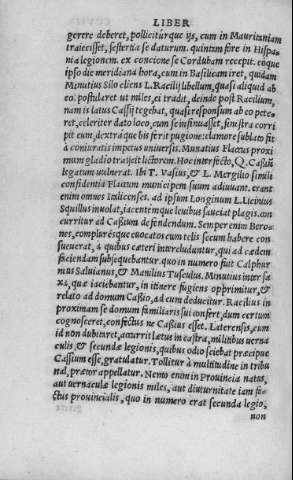 LIBER
gerere deberet, pollicitúrque ijs, cum in Mauritaniam
traiecisset, sestertia se daturum. quintam fore in Hispa
nia legionem. ex concione se Cordubam recepit. eóque
ipso die meridiana hora, cum in Basilicam iret, quidam
Minutius Silo cliens L. Racilij libellum, quasi aliquid ab
eo postularet ut miles, ei tradit, deinde post Racilium,
nam is latus Cassij tegebat, quasi responsum ab eo pete-
ret, celeriter dato loco, cum se insinuasset, sinistra corri
pit eum, dextráque bis ferit pugione: clamore sublato fit
à coniuratis impetus universis. Munatius Flaccus proxi
mum gladio traijcit lictorem. Hoc interfecto, Q. Cassium
legatum uulnerat. Ibi T. Vasius, & L. Mergilio simili
confidentia Flaccum municipem suum adiuuant. erant
enim omnes Italicenses. ad ipsum Longinum L. Licinius
Squillus inuolat, iacentémque leuibus sauciat plagis. con
curritur ad Cassium defendendum. Semper enim Bero-
nes, complurésque euocatos cum telis secum habere con
sueuerat, à quibus cæteri intercluduntur, qui ad cædem
faciendam subsequebantur. quo in numero fuit Calphur
nius Saluianus, & Manilius Tusculus. Minutius inter sa
xa, quæ iacebantur, in itinere fugiens opprimitur, &
relato ad domum Cassio, ad eum deducitur. Racilius in
proximam se domum familiaris sui confert, dum certum
cognosceret, confectus ne Cassius esset. Laterensis, cum
id non dubitaret, accurrit lætus in castra, militibus uerna
culis, & secundæ legionis, quibus odio sciebat præcipue
Cassium esse, gratulatur. Tollitur à multitudine in tribu
nal, prætor appellatur. Nemo enim in Prouincia natus,
aut uernaculæ legionis miles, aut diuturnitate iam fa-
ctus prouincialis, quo in numero erat secunda legio,
non